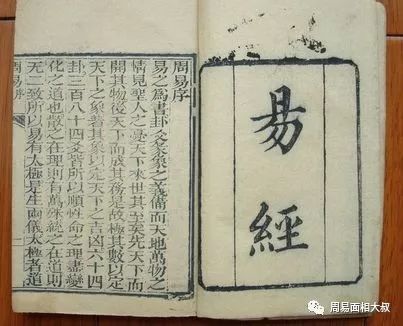 易經
周易序
易之為書卦爻彖象之義備而天地萬物之
情見聖人之憂天下來世其至矣先天下而
開其物後天下而成其務是故極其數以定
天下之象著其象以定天下之吉凶六十四
卦三百八十四爻皆所以順性命之理盡變
化之道也散之在理則有萬殊統之在道則
无二致所以易有太極是生兩儀太極者道
周易序
一
周易面相大叔